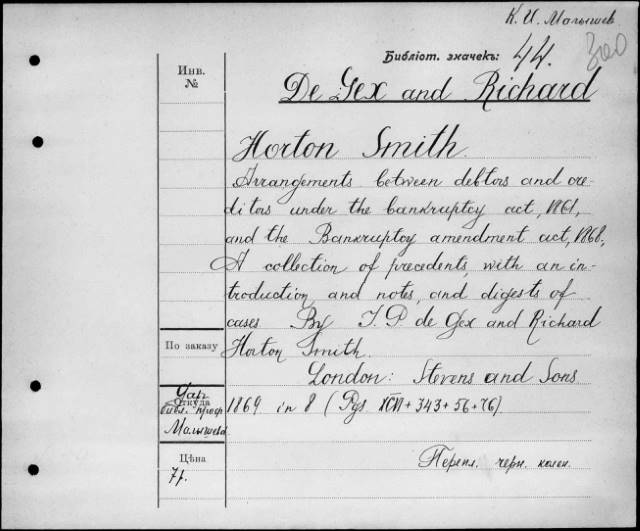 К. И. Малышев
Библіот. значекъ: 44.
300
Инв.
№
De Gex and Richard
Horton Smith.
Arrangements between debtors and cre-
ditors under the bankruptcy act, 1861,
and the Bankruptcy amendment act, 1868,
A collection of precedents, with an in-
troduction and notes, and digests of
cases. By J. P. de Gex and Richard
По заказу
Horton Smith.
London: Stevens and Sons
Откуда
Дар
библ. проф
Малышева
1869 in 8 (Pgs. XCII+343+56+76)
Цѣна
7 р.
Перепл. черн. колен.